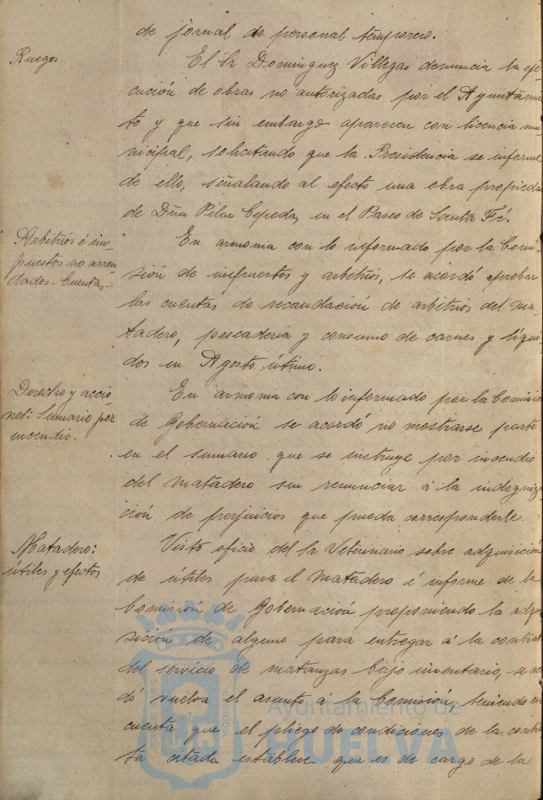 de jornal de personal temporero.
Ruegos
El Sr Dominguez Villegas denuncia la eje
cución de obras no autorizadas por el Ayuntamien
to y que sin embargo aparecen con licencia mu
nicipal, solicitando que la Presidencia se informe
de ello, señalando al efecto una obra propiedad
de Dña Pilar Cepeda, en el Paseo de Santa Fé.
Arbitrios é im-
puestos no arren
dados - Cuentas -
En armonia con lo informado por la Comi
sión de impuestos y arbitrios, se acordó aprobar
las cuentas de recaudación de arbitrios del ma
tadero, pescaderia y consumo de carnes y líqui
dos en Agosto último.
Derecho y accio
nes: Sumario por
incendio.
En armonia con lo informado por la Comisión
de Gobernación se acordó no mostrarse parte
en el sumario que se instruye por incendio
del matadero sin renunciar á la indegniza
ción de perjuicios que pueda corresponderle.
Matadero:
útiles y efectos
Visto oficio del Sr Veterinario sobre adquisición
de útiles para el Matadero é informe de la
Comisión de Gobernación proponiendo la adqui
sición de alguno para entregar á la contrata
del servicio de matanzas bajo inventario, se acor
dó vuelva el asunto á la Comisión, teniendo en
cuenta que el pliego de condiciones de la contra
ta citada establece que es de cargo de la
Ayuntamiento de
HUELVA